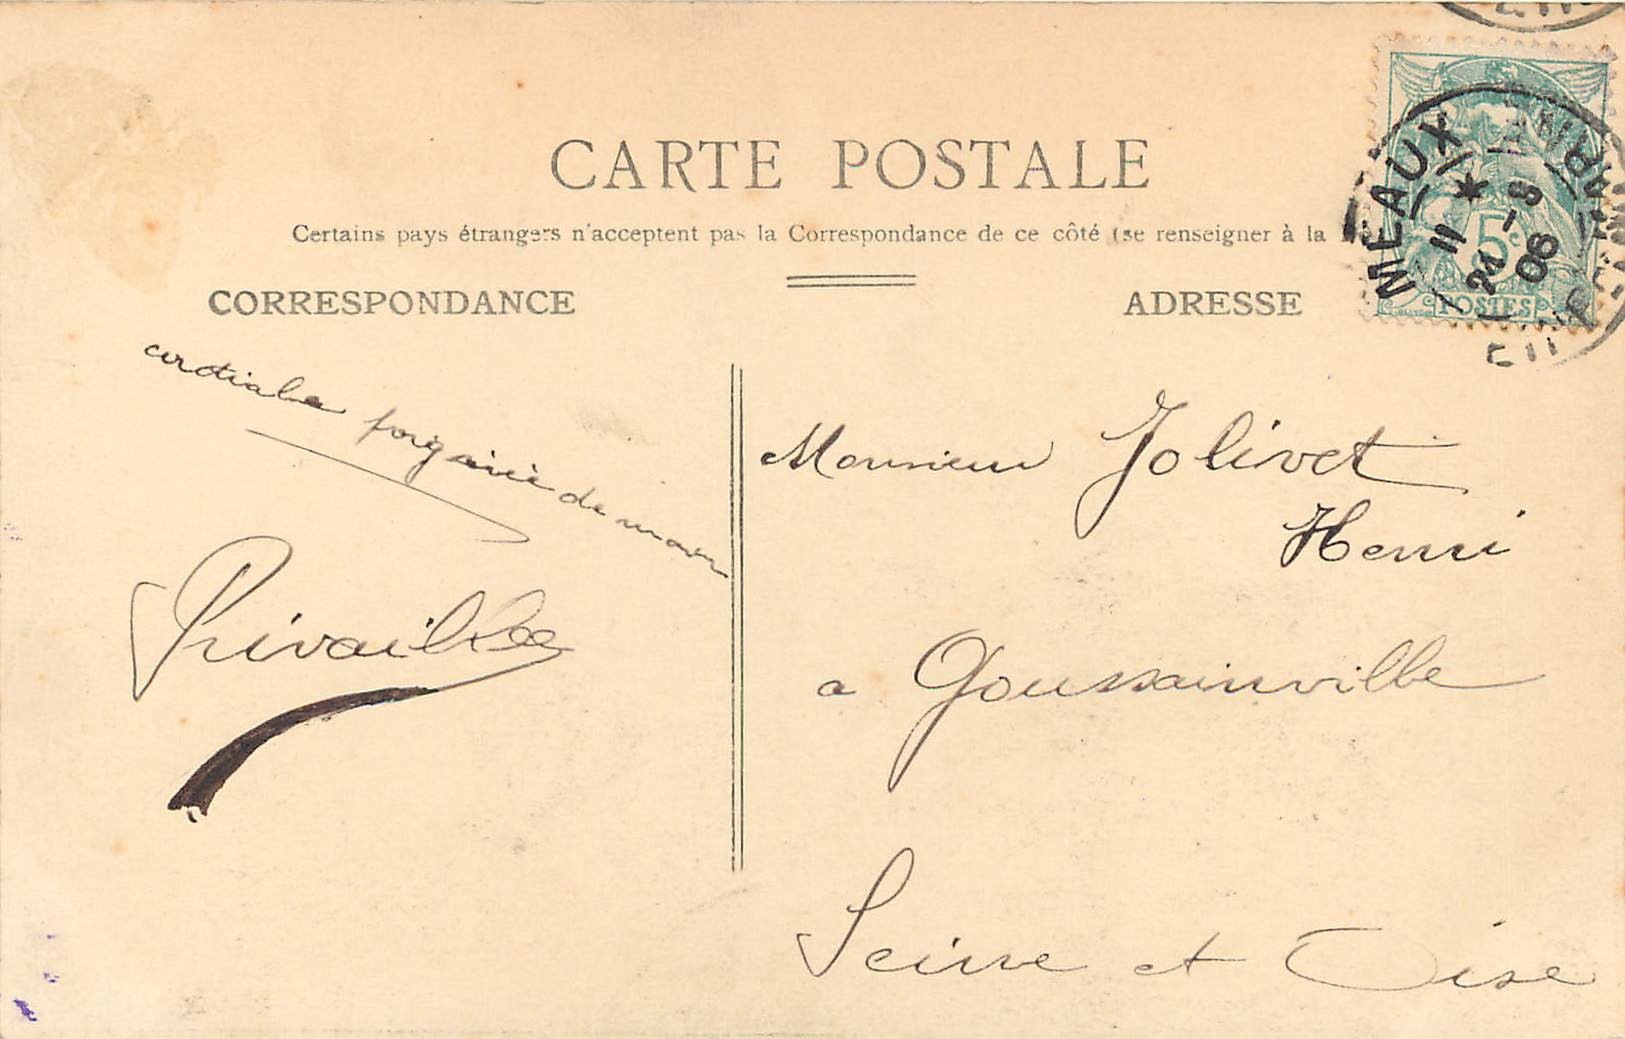 CARTE POSTALE
Certains pays étrangers n'acceptent pas la Correspondance de ce côté (se renseigner à la
CORRESPONDANCE
ADRESSE
MEAUX
11 *
21 - 8
06
5c
POSTES
cordiale poignée de main
Privaillee
Monsieur Jolivet
Henri
a Goussainville
Seine et Oise